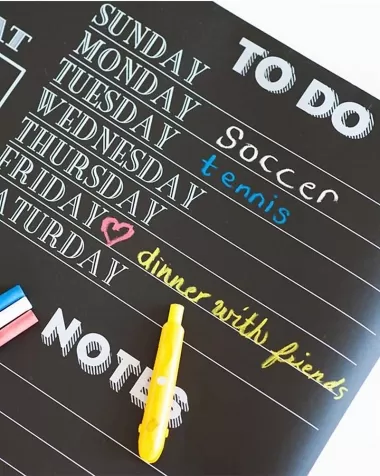 AT
TO DO
SUNDAY
MONDAY Soccer
TUESDAY tennis
WEDNESDAY
THURSDAY
FRIDAY dinner with friends
ATURDAY
NOTES